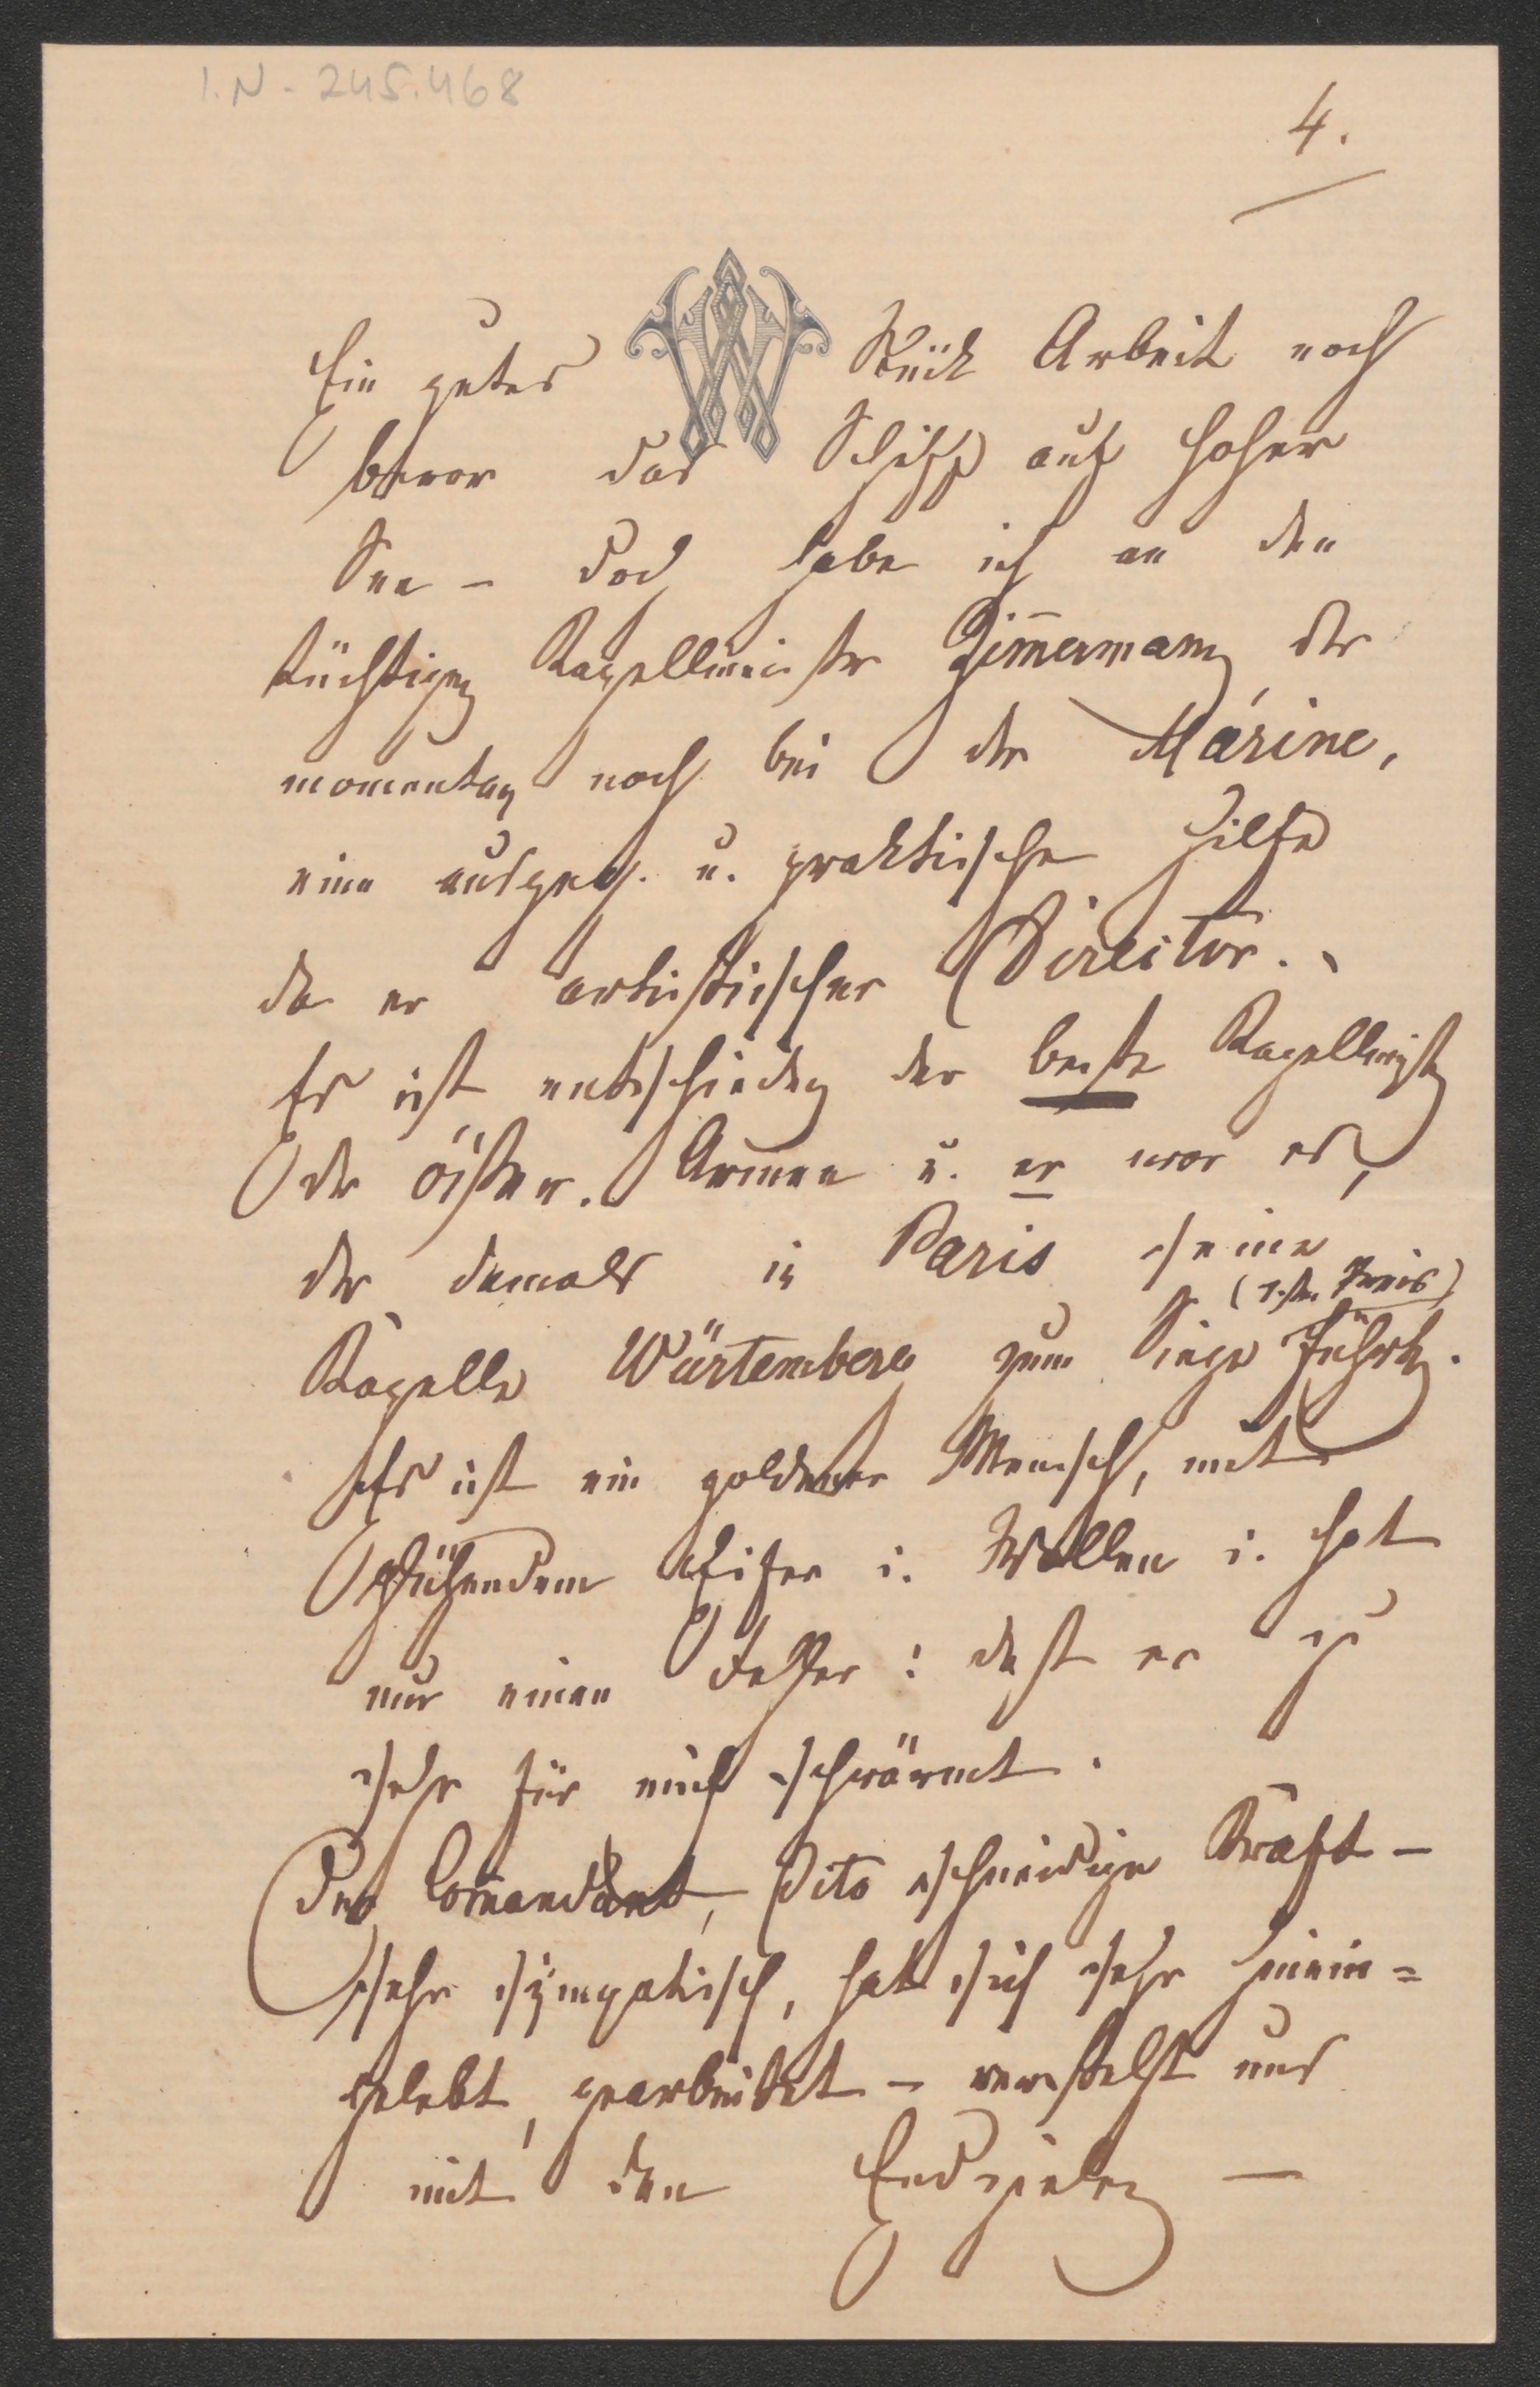 I.N. 245.468
4.
Ein gutes Stück Arbeit noch
bevor das Schiff auf hoher
See – doch habe ich an den
tüchtigen Kapellmeister Zimmermann, der
momentan noch bei der Marine,
eine ausgez. u. praktische Hilfe
da er artistischer Director.
Er ist entschieden der beste Kapellmeister
der österr. Armee u. er war es,
der damals in Paris seine
(1.ster Preis)
Kapelle Würtemberg zum Siege führte.
Er ist ein goldener Mensch, mit
glühendem Eifer u. Wollen u. hat
nur einen Fehler: dasz er zu
sehr für mich schwärmt.
Der Commandant, dito schneidige Kraft –
sehr sympatisch, hat sich sehr hinein=
gelebt, gearbeitet – uns
mit den Endzielen –